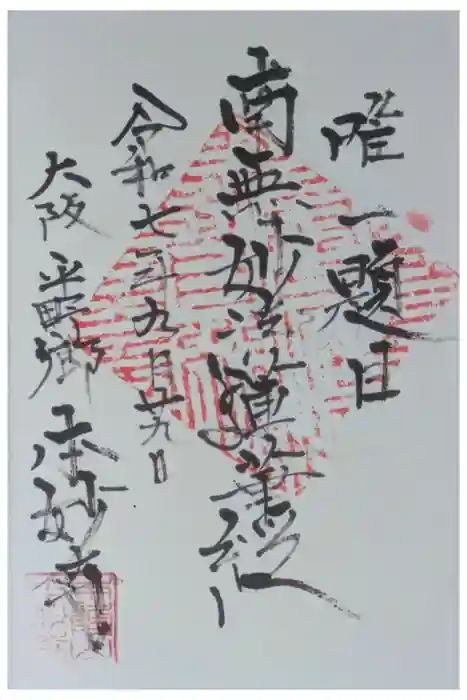 唯一題目
南無妙法蓮華経
令和七年九月廿九日
大阪 平野郷